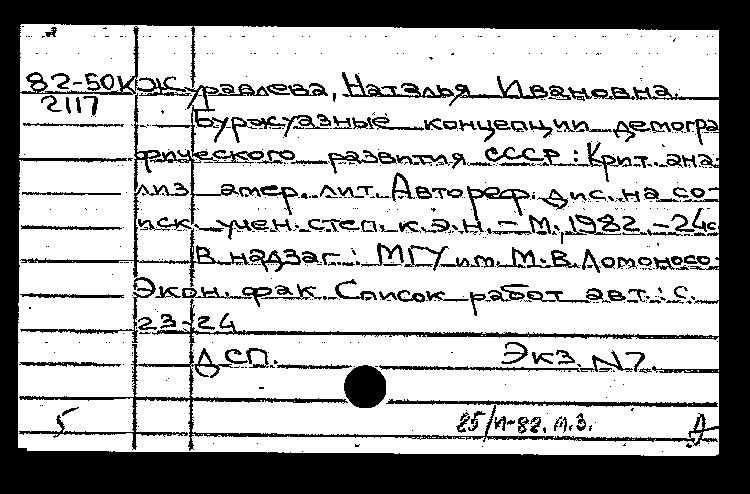 82-50К Журавлева, Наталья Ивановна.
2117
Буржуазные концепции демогра
фического развития СССР: Крит. ана-
лиз амер. лит. Автореф. дис. на со-
иск. учен. степ. к.э.н. – М., 1982. – 24с
В надзаг.: МГУ им. М.В. Ломоносо-
Экон. фак Список работ авт.: с.
23-24
ДСП. Экз. N7.
5 25/II-82. М.З. Д